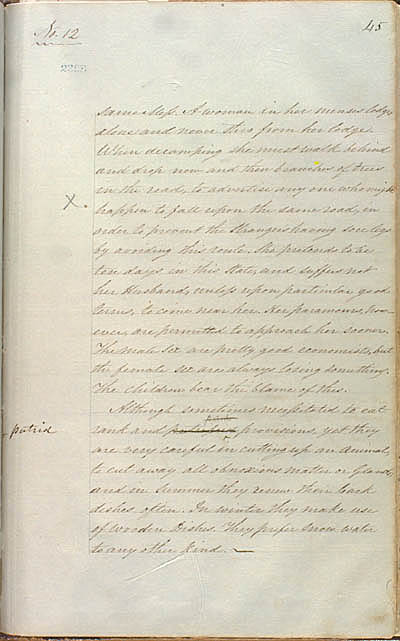 No. 12
45
same step. A woman in her menses lodges
alone and never stirs from her lodge.
When decamping she must walk behind
and drop now and then branches of trees
in the road, to advertise any one who might
X.
happen to fall upon the same road, in
order to prevent the Strangers having sore legs
by avoiding this route. She pretends to be
ten days in this State, and suffers not
her Husband, unless upon particular good
terms, to come near her. Her paramours, how-
ever, are permitted to approach her sooner.
The male sex are pretty good economists, but
the female sex are always losing something.
The children bear the blame of this.
Although sometimes necessitated to eat
putrid
rank and provisions, yet they
are very careful in cutting up an animal,
to cut away all obnoxious matter or Glands,
and in Summer they renew their bark
dishes often. In winter they make use
of Wooden Dishes. They prefer Snow water
to any other kind.